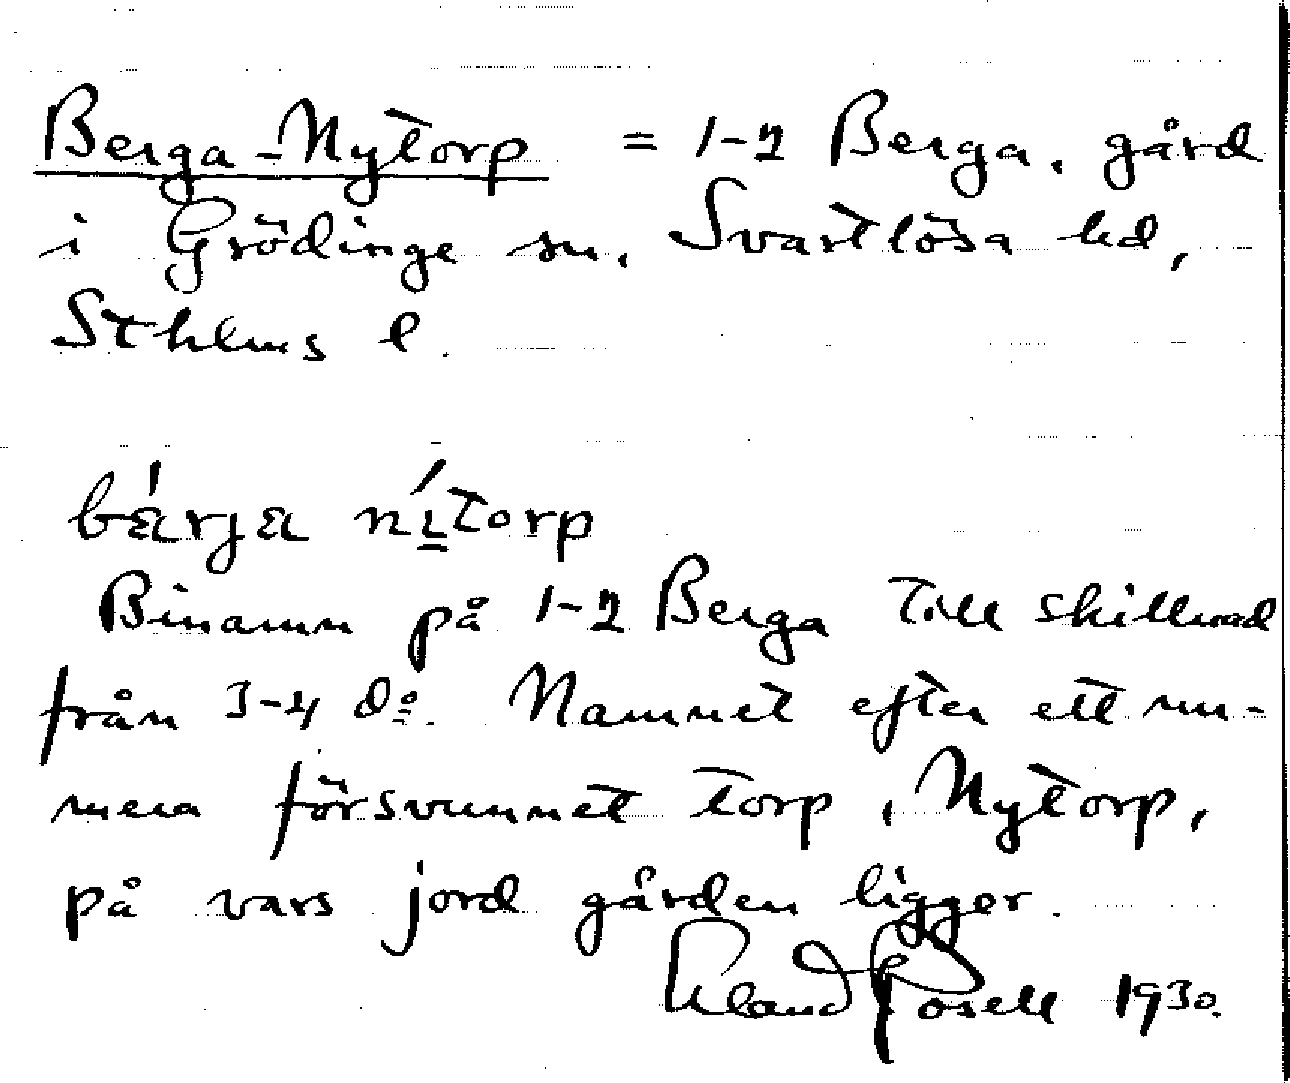 Berga-Nytorp = 1-2 Berga, gård
i Grödinge sn, Svartlösa hd,
Sthlms l.
bárja nítorp
Binamn på 1-2 Berga till skillnad
från 3-4 do. Namnet efter ett nu-
mera försvunnet torp, Nytorp,
på vars jord gården ligger.
Erland Rosell 1930.